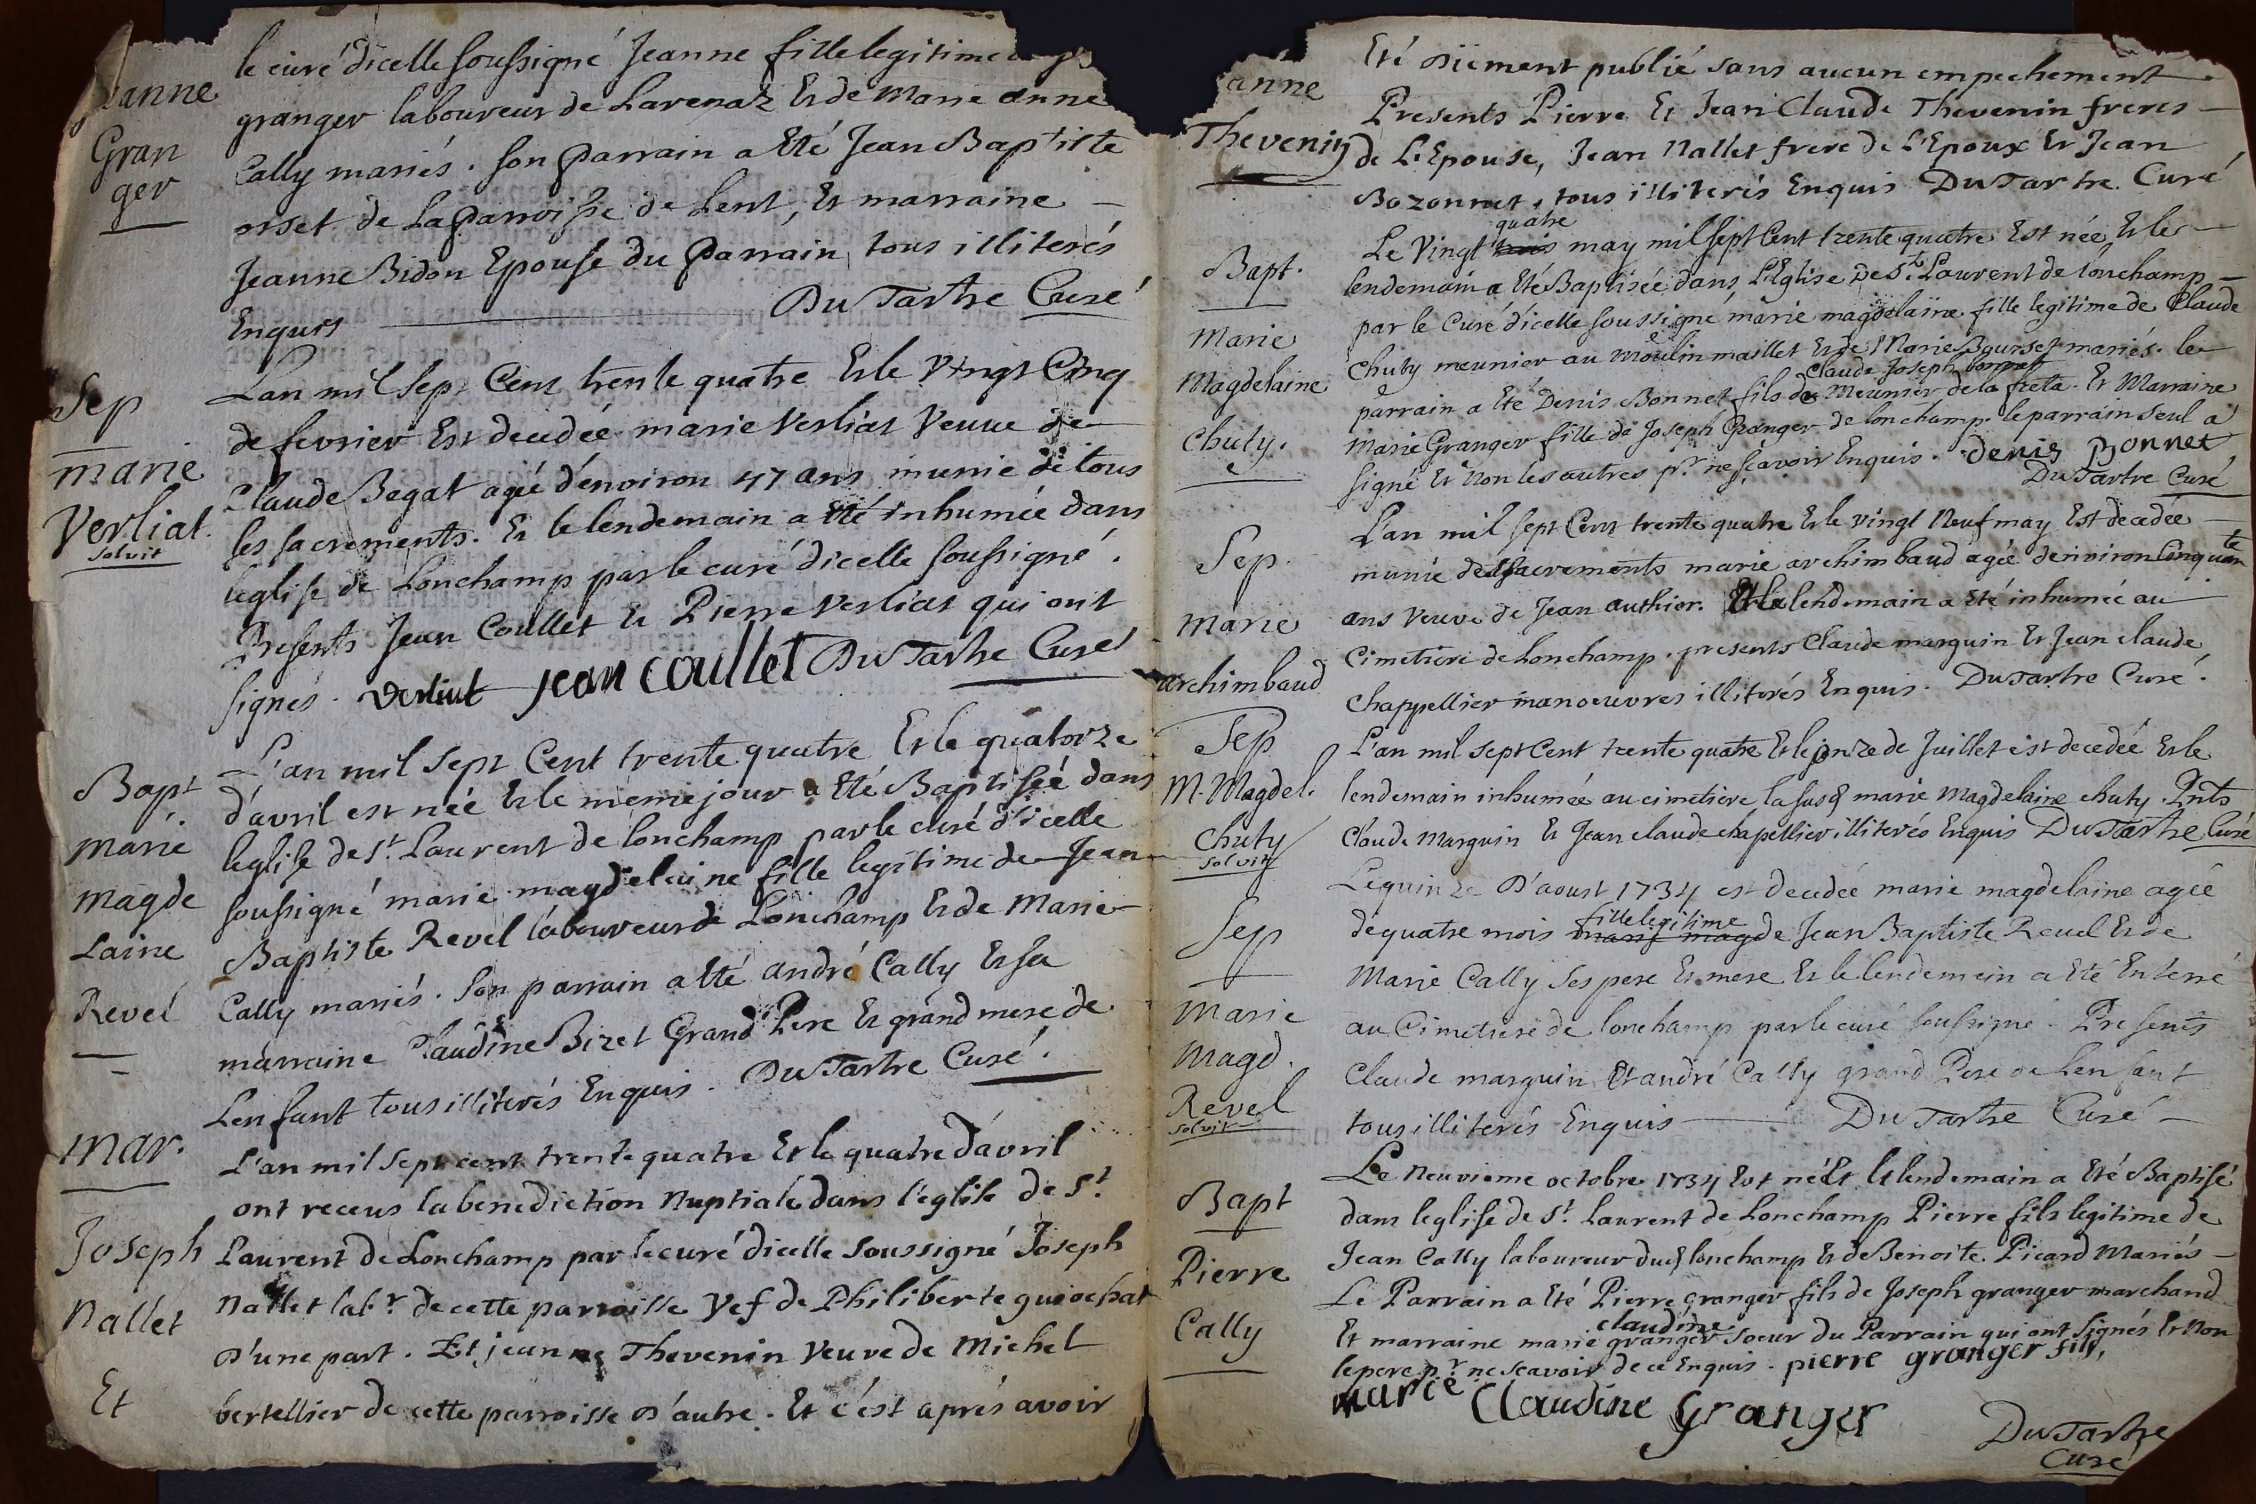 le curé dicelle soussigné Jeanne fille legitime
Jeanne
granger laboureur de Lavenaz Et de Marie anne
Gran
ger
Cally mariés. son parrain a Eté Jean Baptiste
orset de La parroisse de Lent, Et marraine
Jeanne Bidon Epouse du parrain, tous illiterés
Enquis DuTartre Curé
Sep
marie
Verliat
solvit
Lan mil sept Cent trente quatre Et le Vingt Cinq
de fevrier Est decedée marie Verliat Veuve de
Claude Begat agée d'environ 47 ans munie de tous
les sacrements. Et le lendemain a Eté inhumée dans
leglise de Lonchamp par le curé dicelle soussigné.
Presents Jean Coullet Et Pierre Verliat qui ont
signés. Verliat jean coullet DuTartre Curé
Bapt.
Marie
Magde
Laine
Revel
L'an mil sept Cent trente quatre Et le quatorze
d'avril est née Et le meme jour a Eté Baptisée dans
leglise de St. Laurent de Lonchamp par le curé d'icelle
soussigné marie magdelaine fille legitime de Jean
Baptiste Revel laboureur de Lonchamp Et de Marie
Cally mariés. Son parrain a Eté andré Cally Et sa
marraine Claudine Bizet Grand Pere Et grand mere de
Lenfant tous illiterés Enquis. DuTartre Curé.
Mar.
Joseph
Nallet
Et
L'an mil sept cent trente quatre Et le quatre d'avril
ont receus la benediction Nuptiale dans l'eglise de St.
Laurent de Lonchamp par le curé dicelle soussigné Joseph
Nallet labr. de cette parroisse Vef de Philiberte guiochat
d'une part. Et jeanne Thevenin Veuve de Michel
bertellier de cette parroisse d'autre. Et c'est aprés avoir
Jeanne
Thevenin
Eté düement publié sans aucun empechement
Presents Pierre Et Jean Claude Thevenin freres
de L'Epouse, Jean Nallet frere de L'Epoux Et Jean
Bozonnet, tous illiterés Enquis DuTartre Curé
Bapt.
Marie
Magdelaine
Chuty.
quatre
Le Vingt trois may mil sept Cent trente quatre Est née Et le
lendemain a Eté Baptisée dans L'Eglise de St. Laurent de lonchamp
par le Curé dicelle soussigné marie magdelaine fille legitime de Claude
Chuty meunier au moulin maillet Et de Marie Bourset mariés. le
Claude Joseph bonnet
parrain a Eté Denis Bonnet fils de Meunier de la freta. Et Marraine
Marie Granger fille de Joseph Granger de lonchamp. le parrain seul a
signé Et Non les autres pr. ne sçavoir Enquis. denis Bonnet
DuTartre Curé
Sep.
Marie
archimbaud
L'an mil sept Cent trente quatre Et le vingt Neuf may Est decedée
munie des sacrements marie archimbaud agée denviron Cinquante
ans Veuve de Jean authier. Et le lendemain a Eté inhumée au
Cimetiere de Lonchamp. presents Claude marguin Et Jean claude
Chappellier manoeuvres illiterés Enquis. DuTartre Curé.
Sep
M. Magdel.
Chuty
solvit
L'an mil sept Cent trente quatre Et le onze de Juillet est decedée Et le
lendemain inhumée au cimetiere la susd. marie Magdelaine chuty. Pnts
Claude Marguin Et Jean claude chapellier illiterés Enquis DuTartre Curé
Sep
Marie
Magd.
Revel
solvit
Le quinze D'aoust 1734 est decedée marie magdelaine agée
fille legitime
de quatre mois marie mag de Jean Baptiste Revel Et de
Marie Cally ses pere Et mere Et le lendemain a Eté Enterré
au Cimetiere de lonchamp par le curé soussigné. Presents
Claude marguin Et andré Cally grand Pere de Lenfant
tous illiterés Enquis DuTartre Curé
Bapt
Pierre
Cally
Le Neuvieme octobre 1734 Est né Et le lendemain a Eté Baptisé
dans leglise de St. Laurent de Lonchamp Pierre fils legitime de
Jean Cally laboureur dud. lonchamp Et de Benoite Picard Mariés
Le Parrain a Eté Pierre granger fils de Joseph granger marchand
claudine
Et marraine marie granger soeur du Parrain qui ont signés Et Non
le pere pr. ne scavoir de ce Enquis. pierre granger fils,
marie Claudine granger
DuTartre
Curé